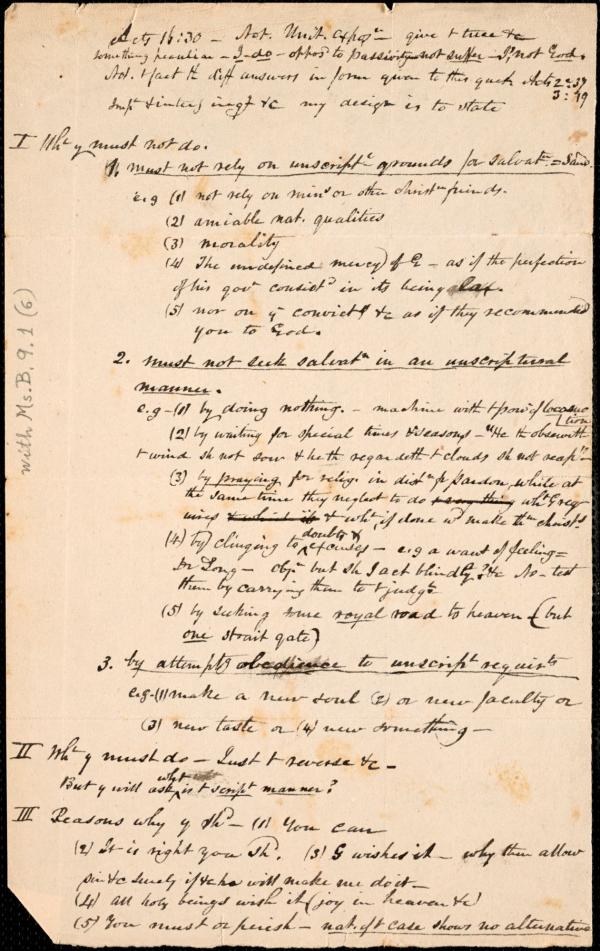 Acts 16:30 - Not. Unit. expos - give t true &c
something peculiar - I do - oppos to passivity not suffer - I, not God.
Not. t fact th diff answers in form given to this quest. Acts 2d 37
3:19
my design is to state
I Wht y must not do.
1. must not rely on unscriptl grounds for salvatn = Sand.
e.g (1) not rely on minrs or other christn friends.
(2) amiable nat. qualities
(3) morality
(4) The undefined mercy of G - as if the perfection
of his govt consistd in its being lax.
(5) nor on yr convictns &c as if they recommended
you to God.
2. must not seek salvatn in an unscriptural
manner.
e.g - (1) by doing nothing. - machine with t powr of locomotion
(2) by waiting for special times & seasons - "He th observeth
t wind sh not sow & he th regardeth t clouds sh not reap" -
(3) by praying for relig. in distn fr pardon, while at
the same time they neglect to do every thing wht G req
uires & which if & wht, if done wd make thm christns
(4) by clinging to doubts & excuses - e.g a want of feeling =
Dr Long - obj. but sh I act blindly? &c No - test
them by carrying them to t judgt
(5) by seeking some royal road to heaven (but
one strait gate)
3. by attemptg obedience to unscript requirts
e.g - (1) make a new soul (2) or new faculty or
(3) new taste or (4) new something -
II Wht y must do - Just t reverse &c -
But y will ask, what is t script manner?
III Reasons why y shd - (1) You can
(2) It is right you shd. (3) G wishes it - why then allow
sin &c surely if he will make me do it -
(4) all holy beings wish it (joy in heaven &c)
(5) You must or perish - nat. of t case shows no alternative
with Ms.B.9.1 (6)